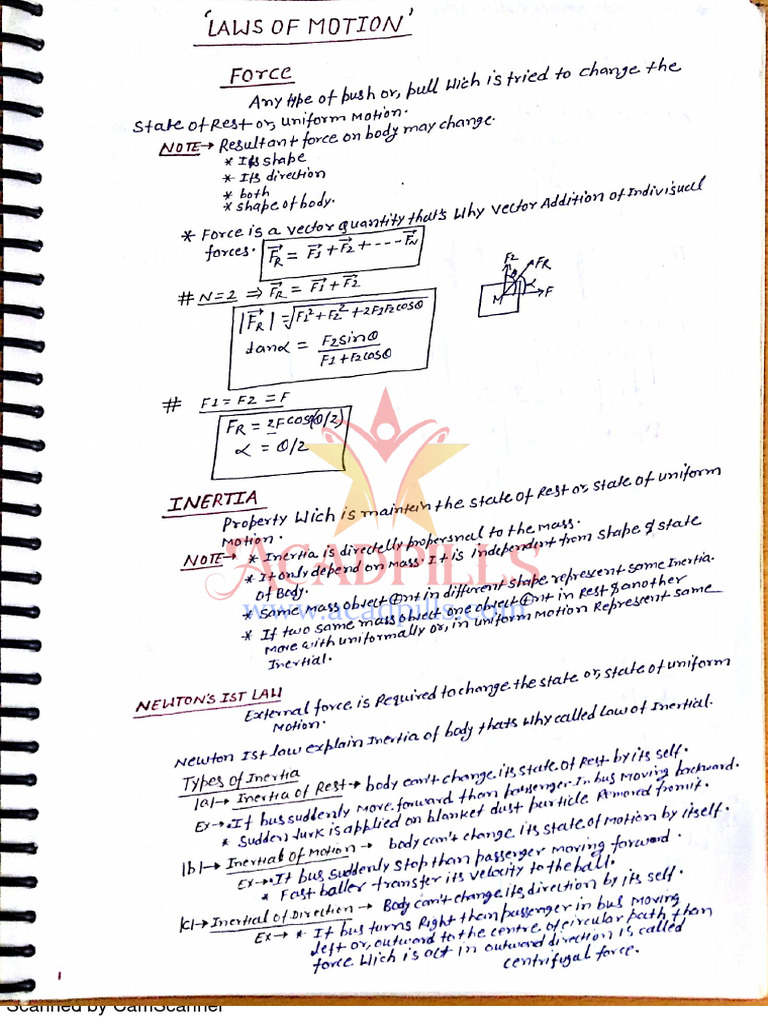 'LAWS OF MOTION'
FORCE
Any type of push or, pull Wich is tried to change the
State of Rest or, Uniform Motion.
NOTE → Resultant force on body may change.
* Its shape
* Its direction
* both
* shape of body.
* Force is a vector quantity that's Why Vector Addition of Indivisual
forces. F⃗R = F⃗1 + F⃗2 + ---- F⃗N
F2 FR
θ α
M F
# N=2 ⇒ F⃗R = F⃗1 + F⃗2
|F⃗R| = √F1² + F2² + 2F1F2cosθ
tanα = F2sinθ / F1 + F2cosθ
# F1 = F2 = F
FR = 2Fcos(θ/2)
α = θ/2
INERTIA
Property Wich is maintein the state of Rest or, state of uniform
Motion.
NOTE → * Inertia is directelly propersnal to the mass.
* It only depend on mass. It is independent from shape & state
of Body.
* same mass object in different shape represent same Inertia.
* If two same mass object one object in Rest & another
move with uniformally or, in uniform motion Represent same
Inertial.
ACADPILLS
www.acadpills.com
NEWTON'S IST LAW
External force is Required to change the state or, state of uniform
Motion.
Newton Ist law explain Inertia of body thats Why called law of Inertial.
Types of Inertia
|a|→ Inertia of Rest → body can't change its state of Rest by its self.
Ex→ • If bus suddenly move forward than passenger In bus moving backward.
* Sudden Jurk is applied on blanket dust particle Removed from it.
|b|→ Inertial of Motion → body can't change its state of Motion by itself.
Ex→ • If bus suddenly stop than passerger moving forward.
* Fast baller transfer its velocity to the ball.
|c|→ Inertial of Direction → Body can't change its direction by its self.
Ex→ * If bus turns Right then passenger in bus moving
left or, outward to the centre of circular path than
force Wich is act in outward direction is called
centrifugal force.
1
Scanned by CamScanner